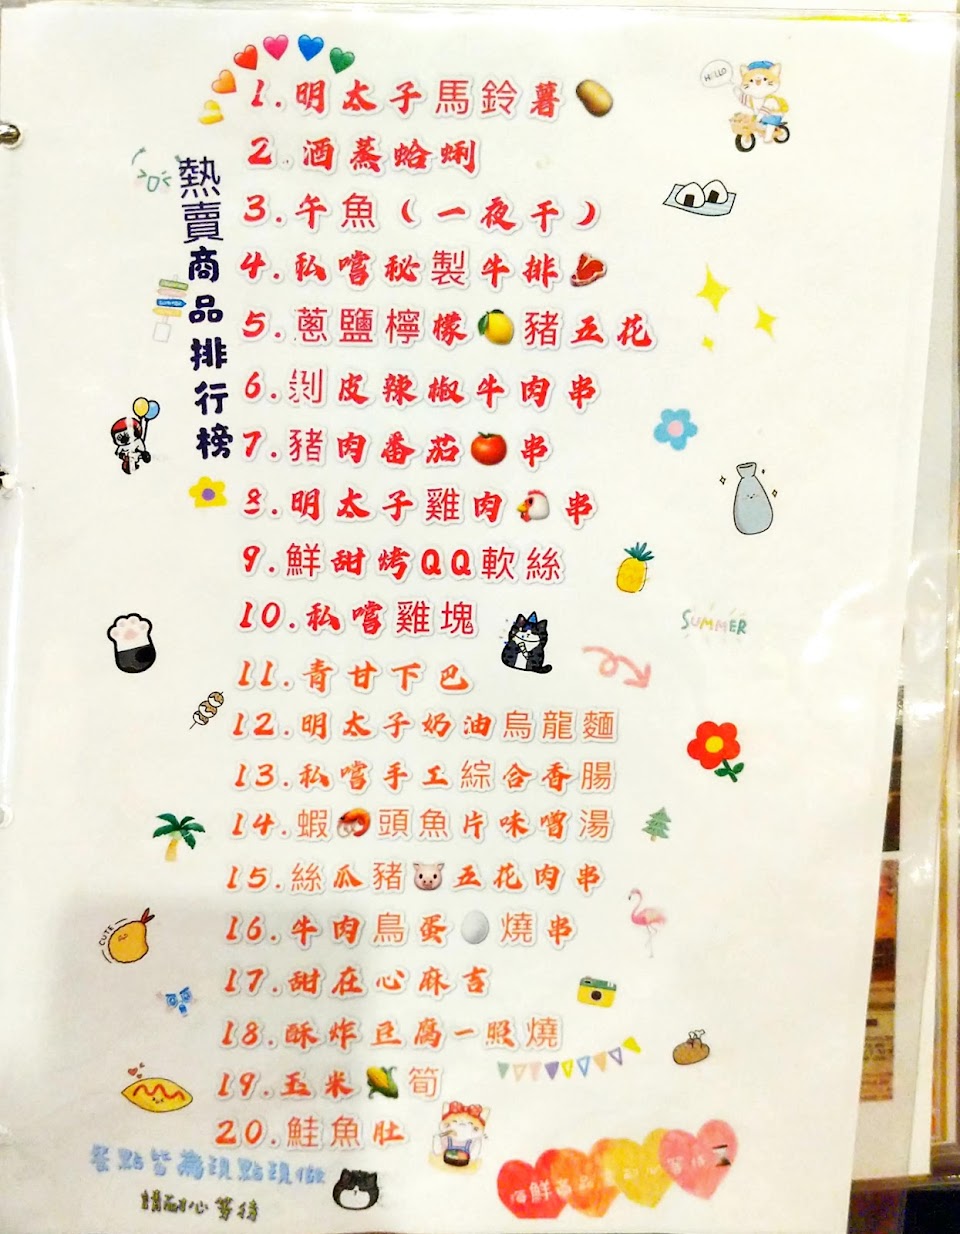 熱賣商品排行榜
HELLO
1.明太子馬鈴薯
2.酒蒸蛤蜊
3.午魚(一夜干)
4.私嚐秘製牛排
5.蔥鹽檸檬豬五花
6.剝皮辣椒牛肉串
7.豬肉番茄串
8.明太子雞肉串
9.鮮甜烤QQ軟絲
10.私嚐雞塊
SUMMER
11.青甘下巴
12.明太子奶油烏龍麵
13.私嚐手工綜合香腸
14.蝦頭魚片味噌湯
15.絲瓜豬五花肉串
16.牛肉鳥蛋燒串
CUTE
17.甜在心麻吉
18.酥炸豆腐一照燒
19.玉米筍
20.鮭魚肚
餐點皆為現點現做
請耐心等待
海鮮商品 耐心等待